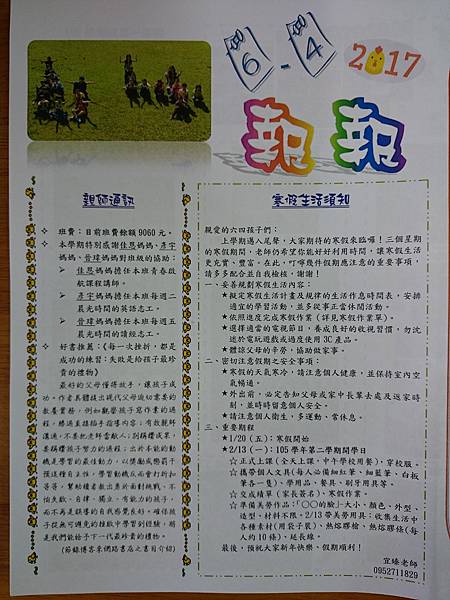 6-4
2017
報報
親師通訊
班費：目前班費餘額9060元。
本學期特別感謝佳恩媽媽、彥宇
媽媽、晉瑋媽媽對班級的協助：
佳恩媽媽擔任本班青春啟
航課程講師。
彥宇媽媽擔任本班每週二
晨光時間的英語志工。
晉瑋媽媽擔任本班每週五
晨光時間的讀經志工。
好書推薦：《每一次挫折，都是
成功的練習：失敗是給孩子最珍
貴的禮物》
最好的父母懂得放手，讓孩子成
功。作者具體提出現代父母迫切需要的
教養實務，例如觀察孩子寫作業的過
程，勝過直接插手指導內容；有教親師
溝通，不要把老師當敵人；別稱讚成果，
要稱讚孩子努力的過程；出於本能的動
機是學習的最佳動力，以獎勵或懲罰干
預這種自主性，學習動機反而會打折扣
等等，幫助讀者教出勇於面對挑戰、不
怕失敗、自律、獨立、有能力的孩子，
而不再是錯誤的自我感覺良好，確保孩
子從無可避免的挫敗中學習到經驗，將
是我們能給予下一代最珍貴的禮物。
(節錄博客來網路書店之書目介紹)
寒假生活須知
親愛的六四孩子們：
上學期邁入尾聲，大家期待的寒假來臨囉！三個星期
的寒假期間，老師仍希望你能好好利用時間，讓寒假生活
更充實、豐富。在此，叮嚀幾件假期應注意的重要事項，
請多多配合並自我檢核，謝謝！
一、妥善規劃寒假生活內容：
★擬定寒假生活計畫及規律的生活作息時間表，安排
適宜的學習活動，並多從事正當休閒活動。
★依照進度完成寒假作業（詳見寒假作業單）。
★選擇適當的電視節目，養成良好的收視習慣，勿沈
迷於電玩遊戲或過度使用3C產品。
★體諒父母的辛勞，協助做家事。
二、密切注意假期之安全事項：
★寒假的天氣寒冷，請注意個人健康，並保持室內空
氣暢通。
★外出前，必定告知父母或家中長輩去處及返家時
刻，並時時留意個人安全。
★請注意個人衛生，多運動、常休息。
三、重要期程
★1/20（五）：寒假開始
★2/13（一）：105學年第二學期開學日
☆正式上課（全天上課、中午學校用餐），穿校服。
☆攜帶個人文具(每人必備細紅筆、細藍筆、白板
筆各一隻)、學用品、餐具、刷牙用具等。
☆交成績單（家長簽名）、寒假作業。
☆準備美勞作品:「○○的臉」-大小、顏色、外型、
造型、材料不限。2/13帶美勞用具：收集生活中
各種素材(用袋子裝)、熱熔膠槍、熱熔膠條(每
人約10條)、延長線。
最後，預祝大家新年快樂、假期順利！
宜臻老師
0952711829